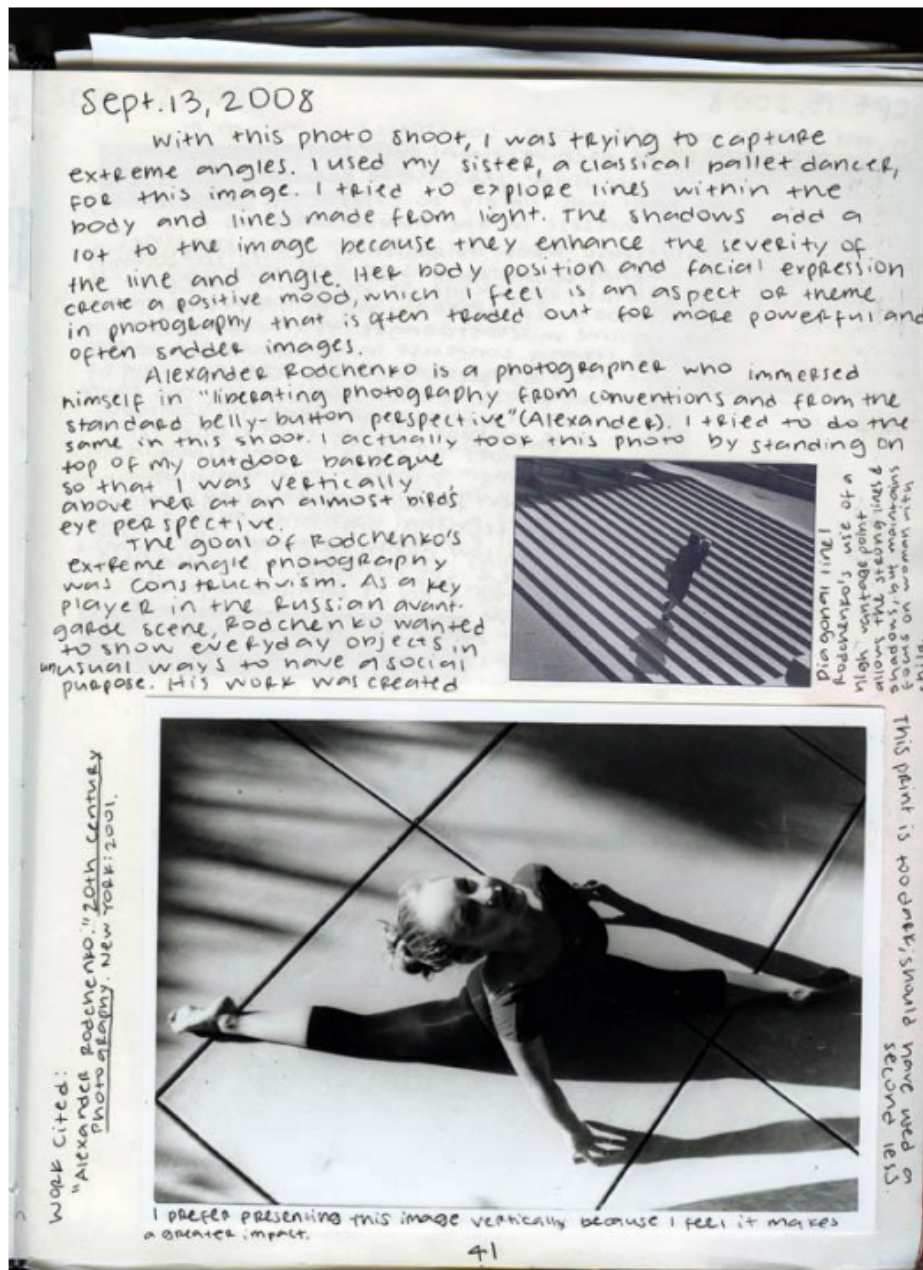 Sept. 13, 2008
With this photo shoot, I was trying to capture
extreme angles. I used my sister, a classical ballet dancer,
for this image. I tried to explore lines within the
body and lines made from light. The shadows add a
lot to the image because they enhance the severity of
the line and angle. Her body position and facial expression
create a positive mood, which I feel is an aspect or theme
in photography that is often traded out for more powerful and
often sadder images.
Alexander Rodchenko is a photographer who immersed
himself in "liberating photography from conventions and from the
standard belly-button perspective" (Alexander). I tried to do the
same in this shoot. I actually took this photo by standing on
top of my outdoor barbeque
so that I was vertically
above her at an almost bird's
eye perspective.
The goal of Rodchenko's
extreme angle photography
was constructivism. As a key
player in the Russian avant-
garde scene, Rodchenko wanted
to show everyday objects in
unusual ways to have a social
purpose. His work was created
Diagonal line!
Rodchenko's use of a
high vantage point
allows the strong lines &
shadows
focus on woman
This print is too dark; should have used a
second less.
Work Cited:
"Alexander Rodchenko." 20th century
Photography. New York: 2001.
I prefer presenting this image vertically because I feel it makes
a greater impact.
41